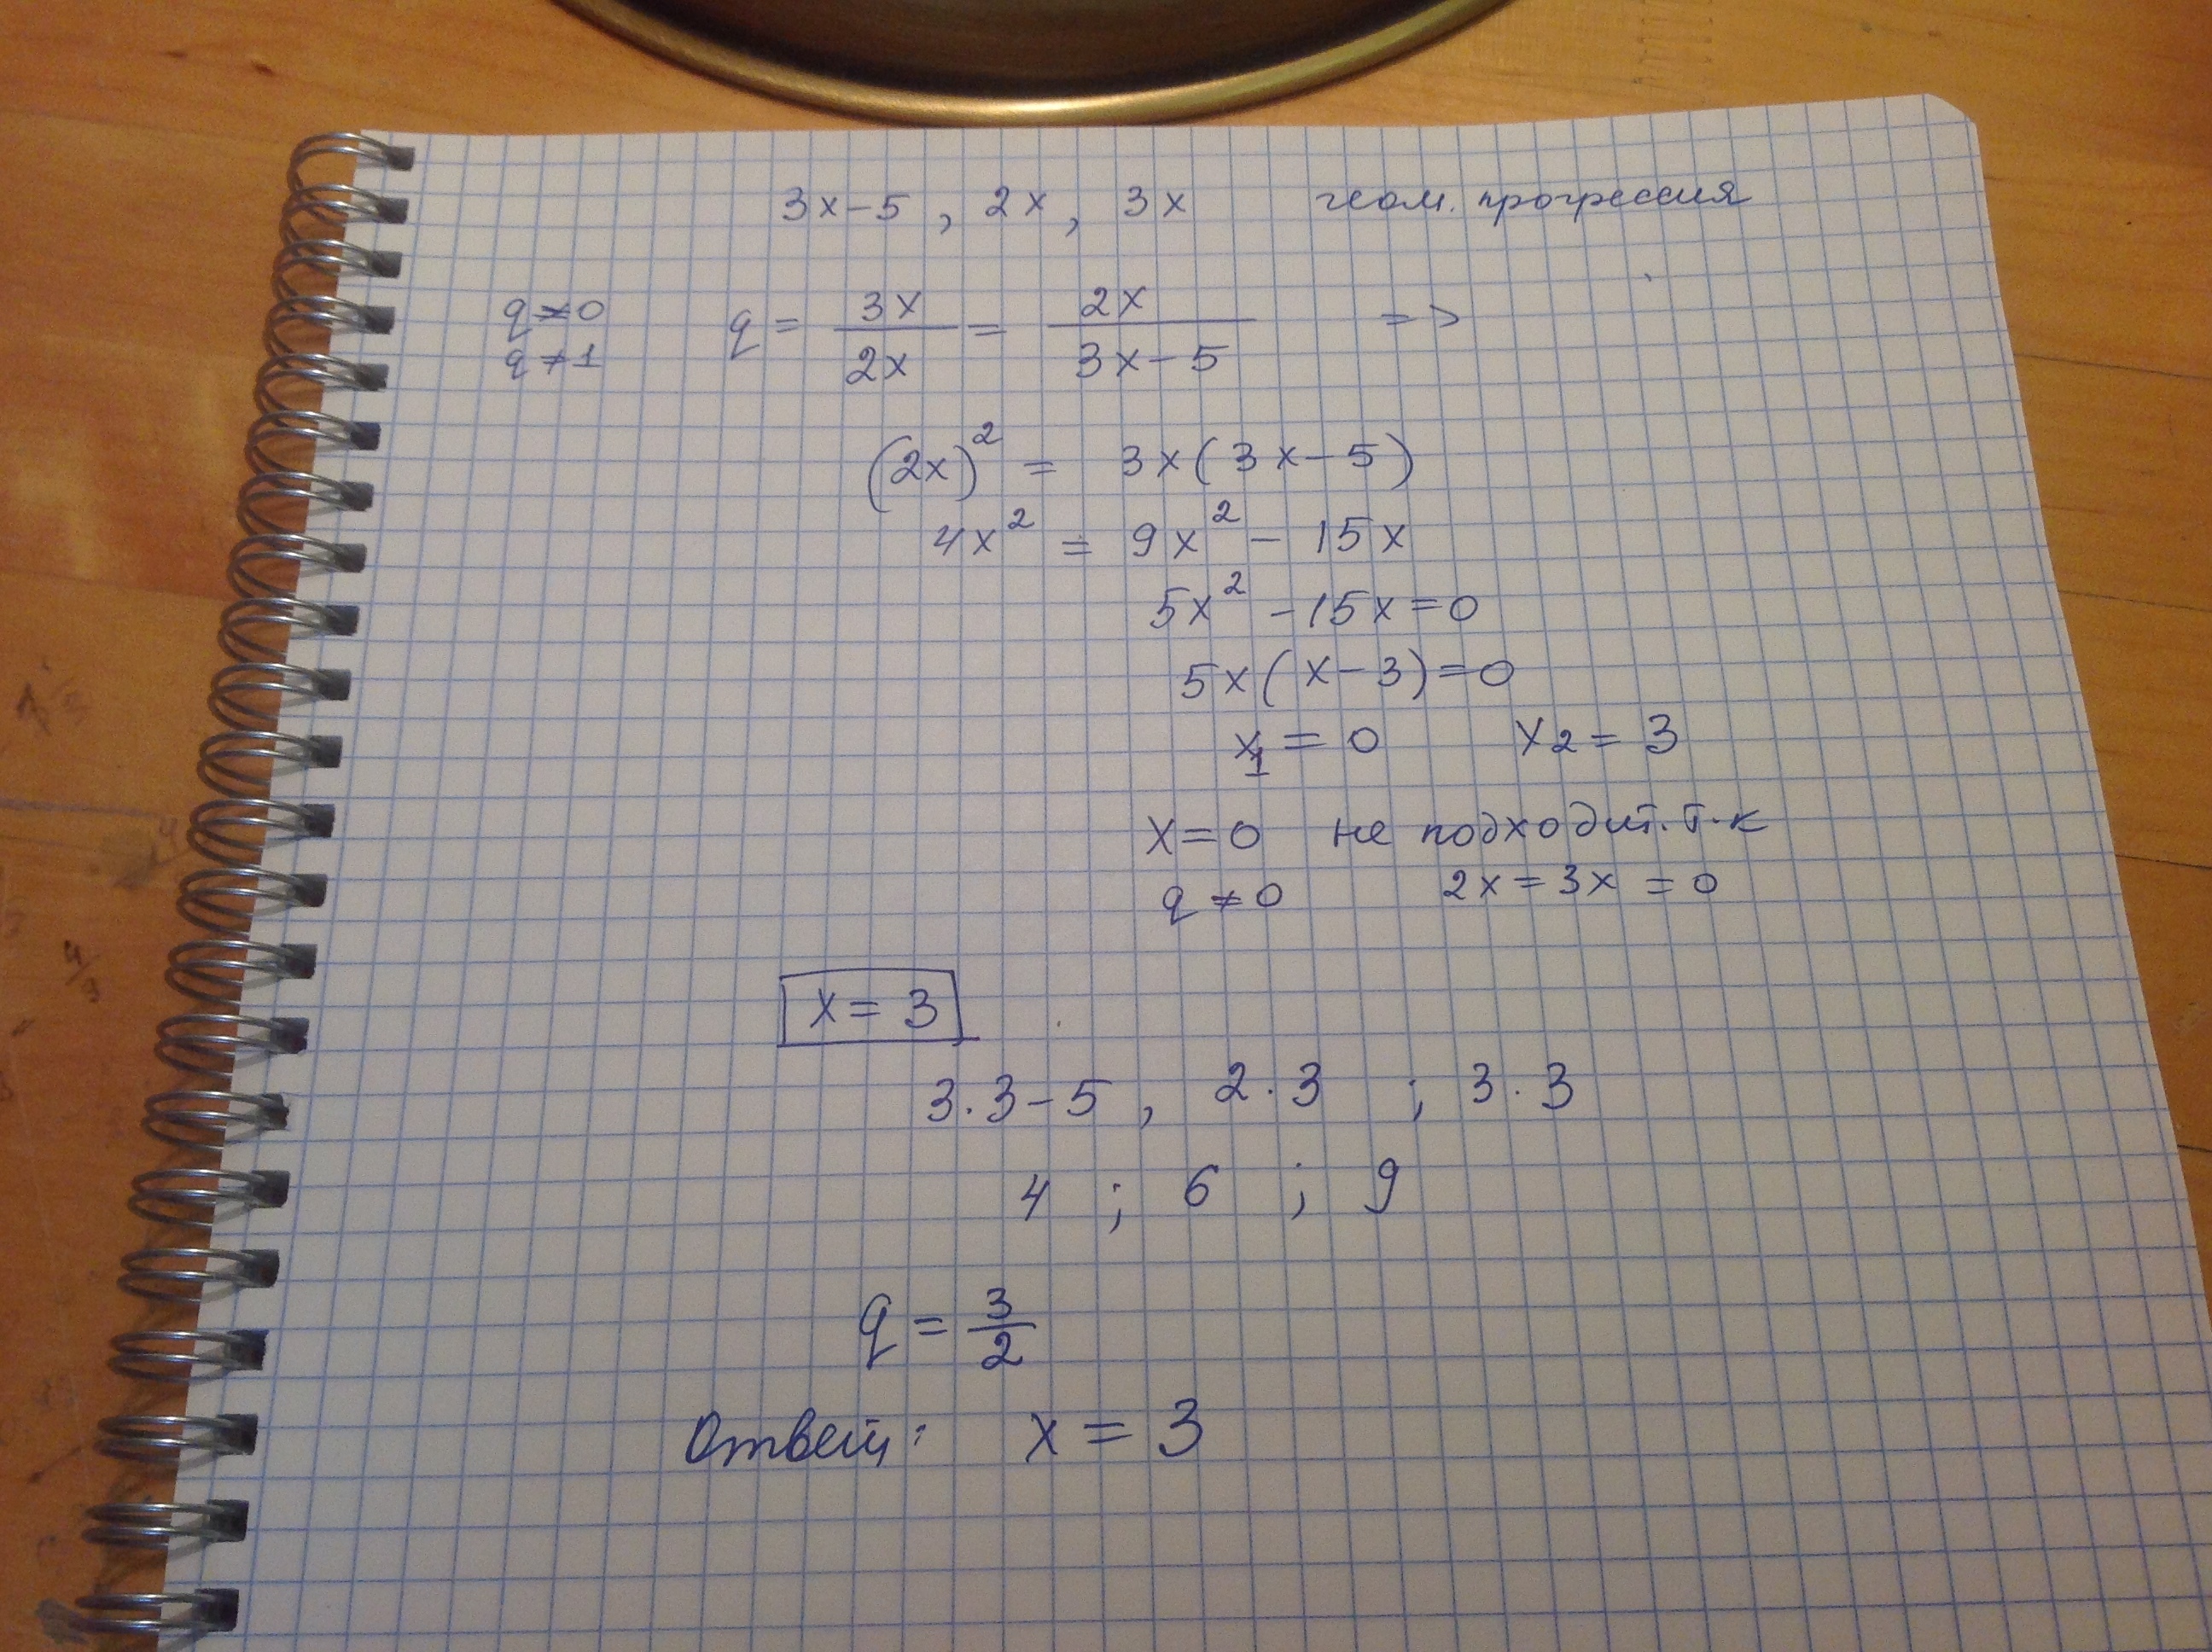 3x-5, 2x, 3x геом. прогрессия
q≠0 q = 3x/2x = 2x/(3x-5) =>
q≠1
(2x)² = 3x(3x-5)
4x² = 9x² - 15x
5x² - 15x = 0
5x(x-3) = 0
x₁ = 0 x₂ = 3
x=0 не подходит. т.к
q≠0 2x=3x=0
x = 3
3·3-5, 2·3 ; 3·3
4 ; 6 ; 9
q = 3/2
Ответ: x = 3